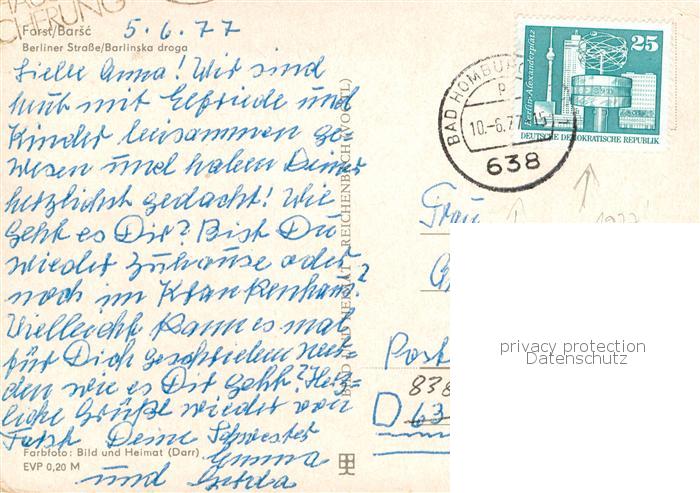 5.6.77
Forst/Baršć
Berliner Straße/Barlinska droga
Liebe Anna! Wir sind
heut mit Elfriede und
Kinder beisammen ge-
wesen und haben Deiner
herzlichst gedacht! Wie
geht es Dir? Bist Du
wieder zuhause oder
noch im Krankenhaus?
Vielleicht kann es mal
für Dich geschrieben wer-
den wie es Dir geht? Herz-
liche Grüße wieder von
Forst Deine Schwester
Emma
und Gerda
Farbfoto: Bild und Heimat (Darr)
EVP 0,20 M
BILD UND HEIMAT REICHENBACH (VOGTL)
BAD HOMBURG
10.-6.77-15
638
25
Berlin-Alexanderplatz
DEUTSCHE DEMOKRATISCHE REPUBLIK
1977!
Frau
Post
838
D 63
privacy protection
Datenschutz